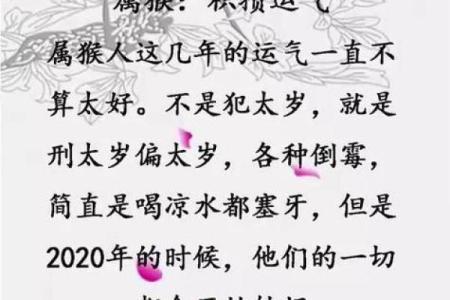 属猴：积攒运气
属猴人这几年的运气一直不
算太好。不是犯太岁，就是
刑太岁偏太岁，各种倒霉，
简直是喝凉水都塞牙，但是
2020年的时候，他们的一切